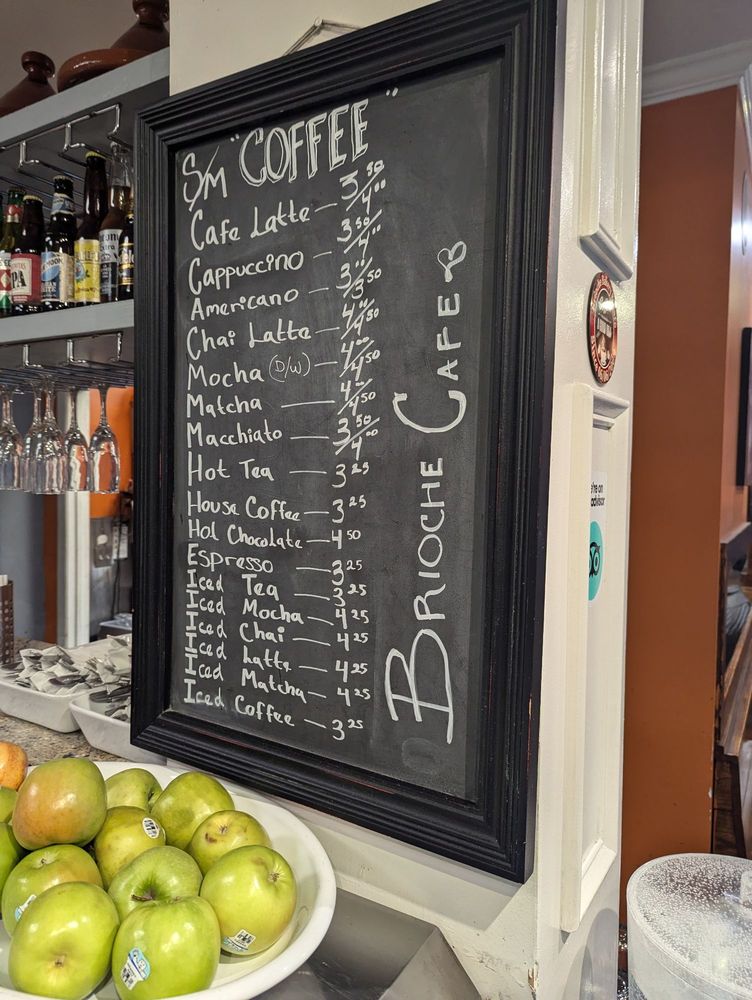 S/M "COFFEE"
Cafe Latte — 3.50/4.00
Cappuccino — 3.50/4.00
Americano — 3.00/3.50
Chai Latte — 4.00/4.50
Mocha (D/W) — 4.00/4.50
Matcha — 4.00/4.50
Macchiato — 3.50/4.00
Hot Tea — 3.25
House Coffee — 3.25
Hot Chocolate — 4.50
Espresso — 3.25
Iced Tea — 3.25
Iced Mocha — 4.25
Iced Chai — 4.25
Iced Latte — 4.25
Iced Matcha — 4.25
Iced Coffee — 3.25
BRIOCHE CAFE